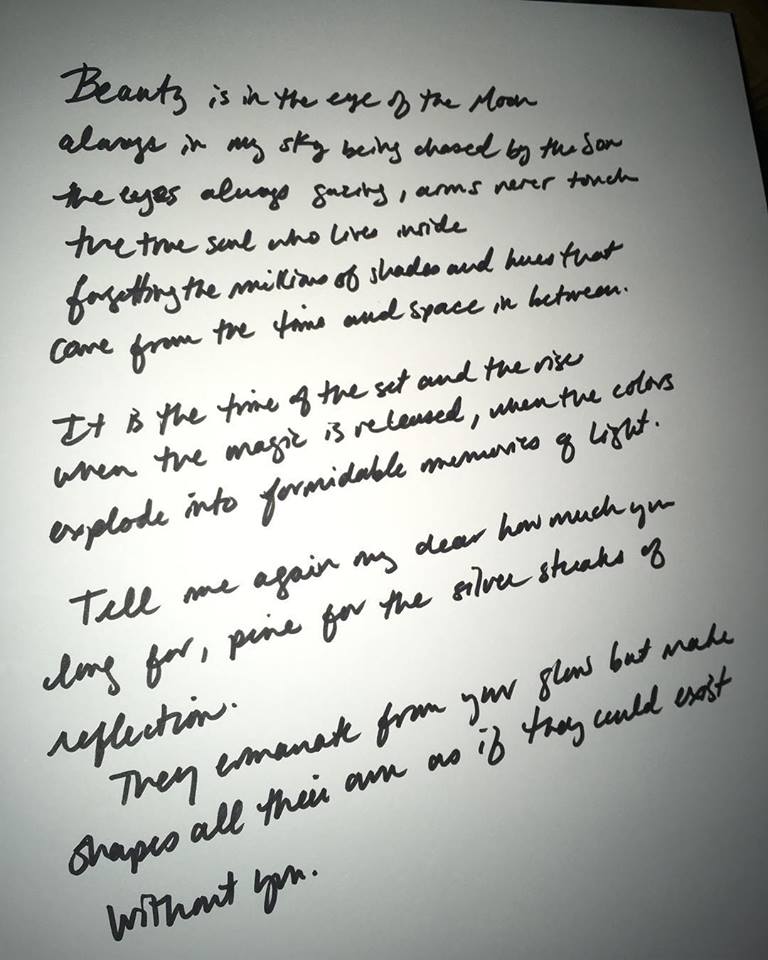 Beauty is in the eye of the Moon
always in my sky being chased by the Sun
the eyes always gazing, arms never touch
the true soul who lives inside
forgetting the millions of shades and hues that
come from the time and space in between.
It is the time of the set and the rise
when the magic is released, when the colors
explode into formidable memories of light.
Tell me again my dear how much you
long for, pine for the silver streaks of
reflection.
They emanate from your glow but make
shapes all their own as if they could exist
without you.